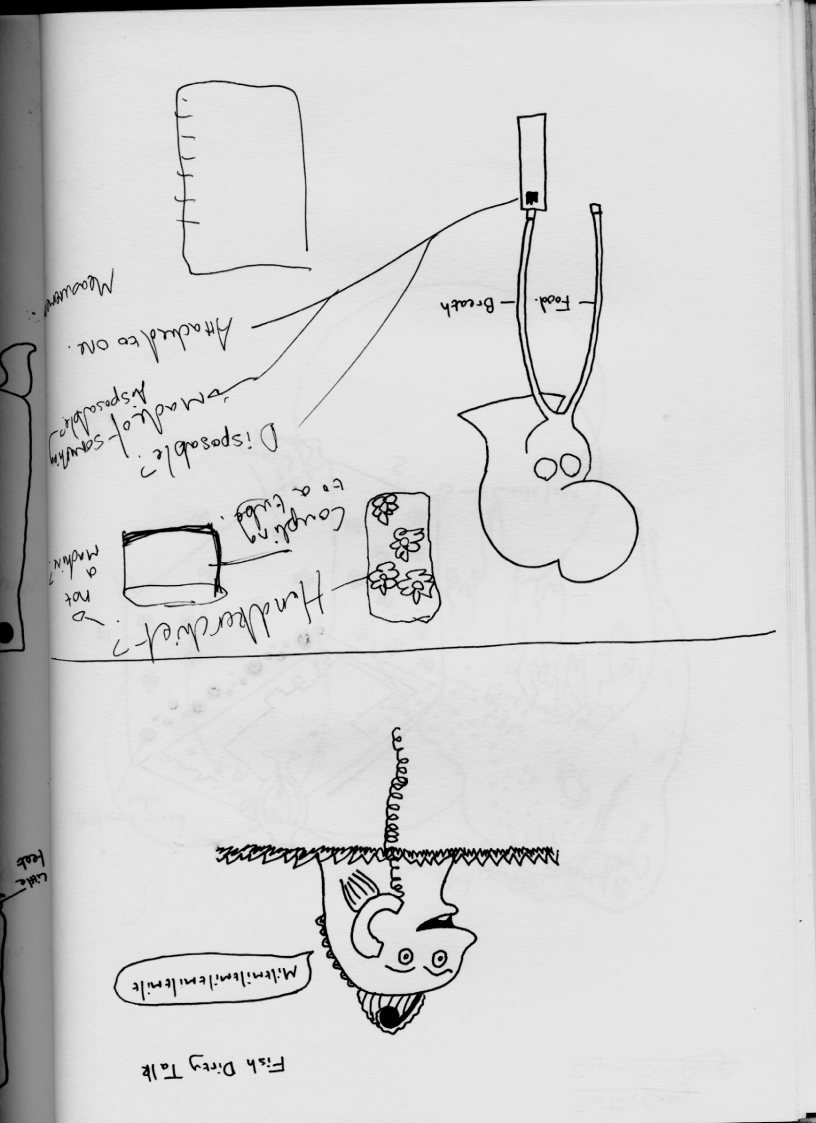 Fish Dirty Talk
Miltmiltmiltmiltmilt
Little
feet
Handkerchief?
not
a
machine?
Coupling
to a tube.
Disposable?
Made of something
disposable?
Attached to one.
Food.
Breath